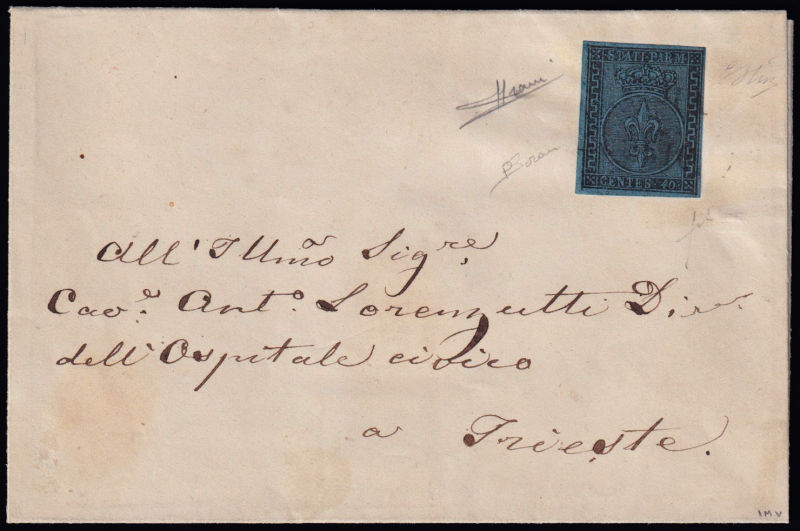 STATI PAR M.
CENTES. 40.
All' Illmo Sigre,
Cavo. Anto. Lorenzutti Dire.
dell' Ospitale civico
a Trieste.
IMV